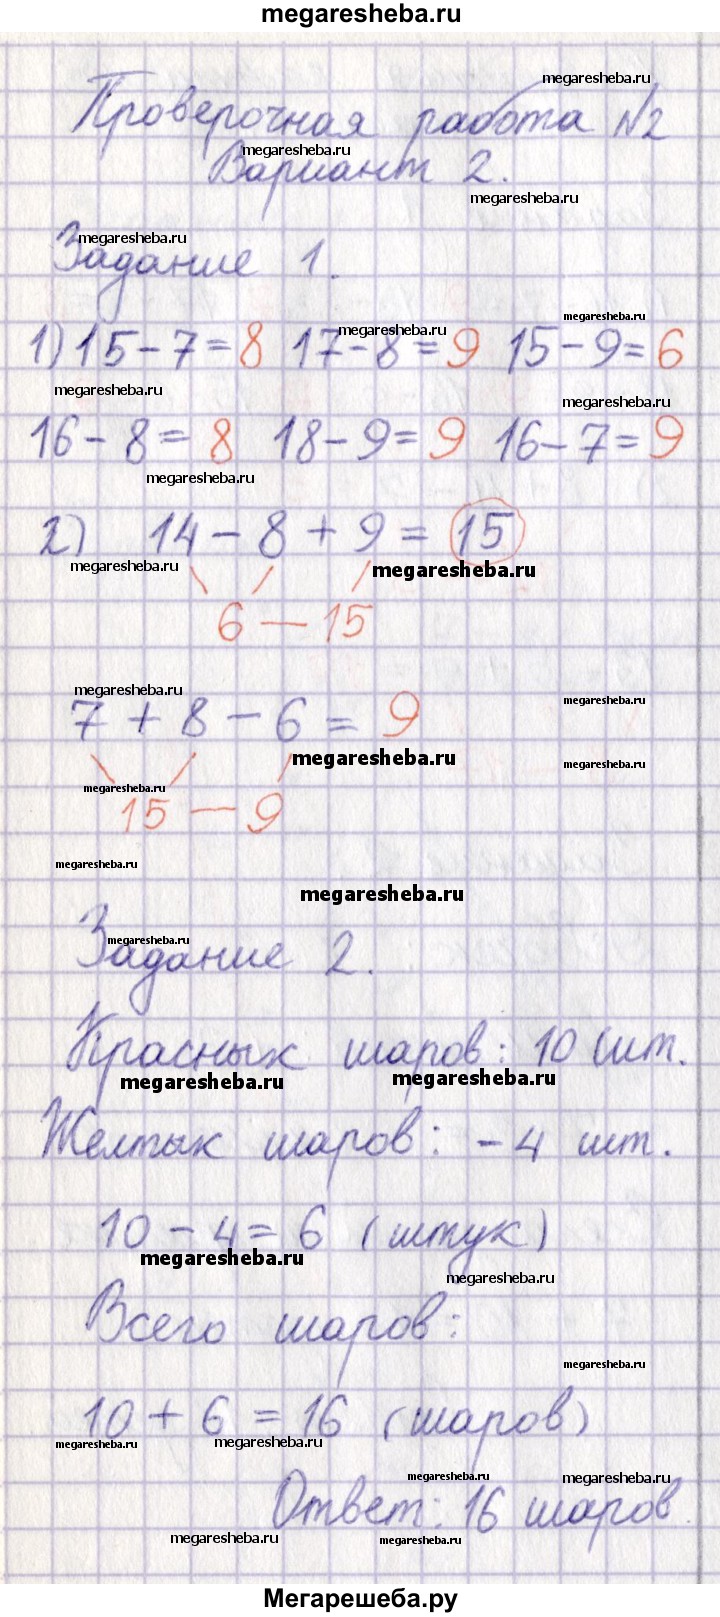 megaresheba.ru
megaresheba.ru
Проверочная работа №2
megaresheba.ru
Вариант 2.
megaresheba.ru
megaresheba.ru
Задание 1.
megaresheba.ru
megaresheba.ru
megaresheba.ru
1) 15-7=8 17-8=9 15-9=6
megaresheba.ru
megaresheba.ru
16-8=8 18-9=9 16-7=9
megaresheba.ru
2) 14-8+9=15
megaresheba.ru
megaresheba.ru
6 — 15
megaresheba.ru
megaresheba.ru
7+8-6=9
megaresheba.ru
megaresheba.ru
megaresheba.ru
15 — 9
megaresheba.ru
megaresheba.ru
megaresheba.ru
Задание 2.
Красных шаров: 10 шт.
megaresheba.ru
megaresheba.ru
Желтых шаров: -4 шт.
10-4=6 (штук)
megaresheba.ru
megaresheba.ru
Всего шаров:
megaresheba.ru
10+6=16 (шаров)
megaresheba.ru
megaresheba.ru
megaresheba.ru
megaresheba.ru
Ответ: 16 шаров.
megaresheba.ru
megaresheba.ru
Мегарешеба.ру